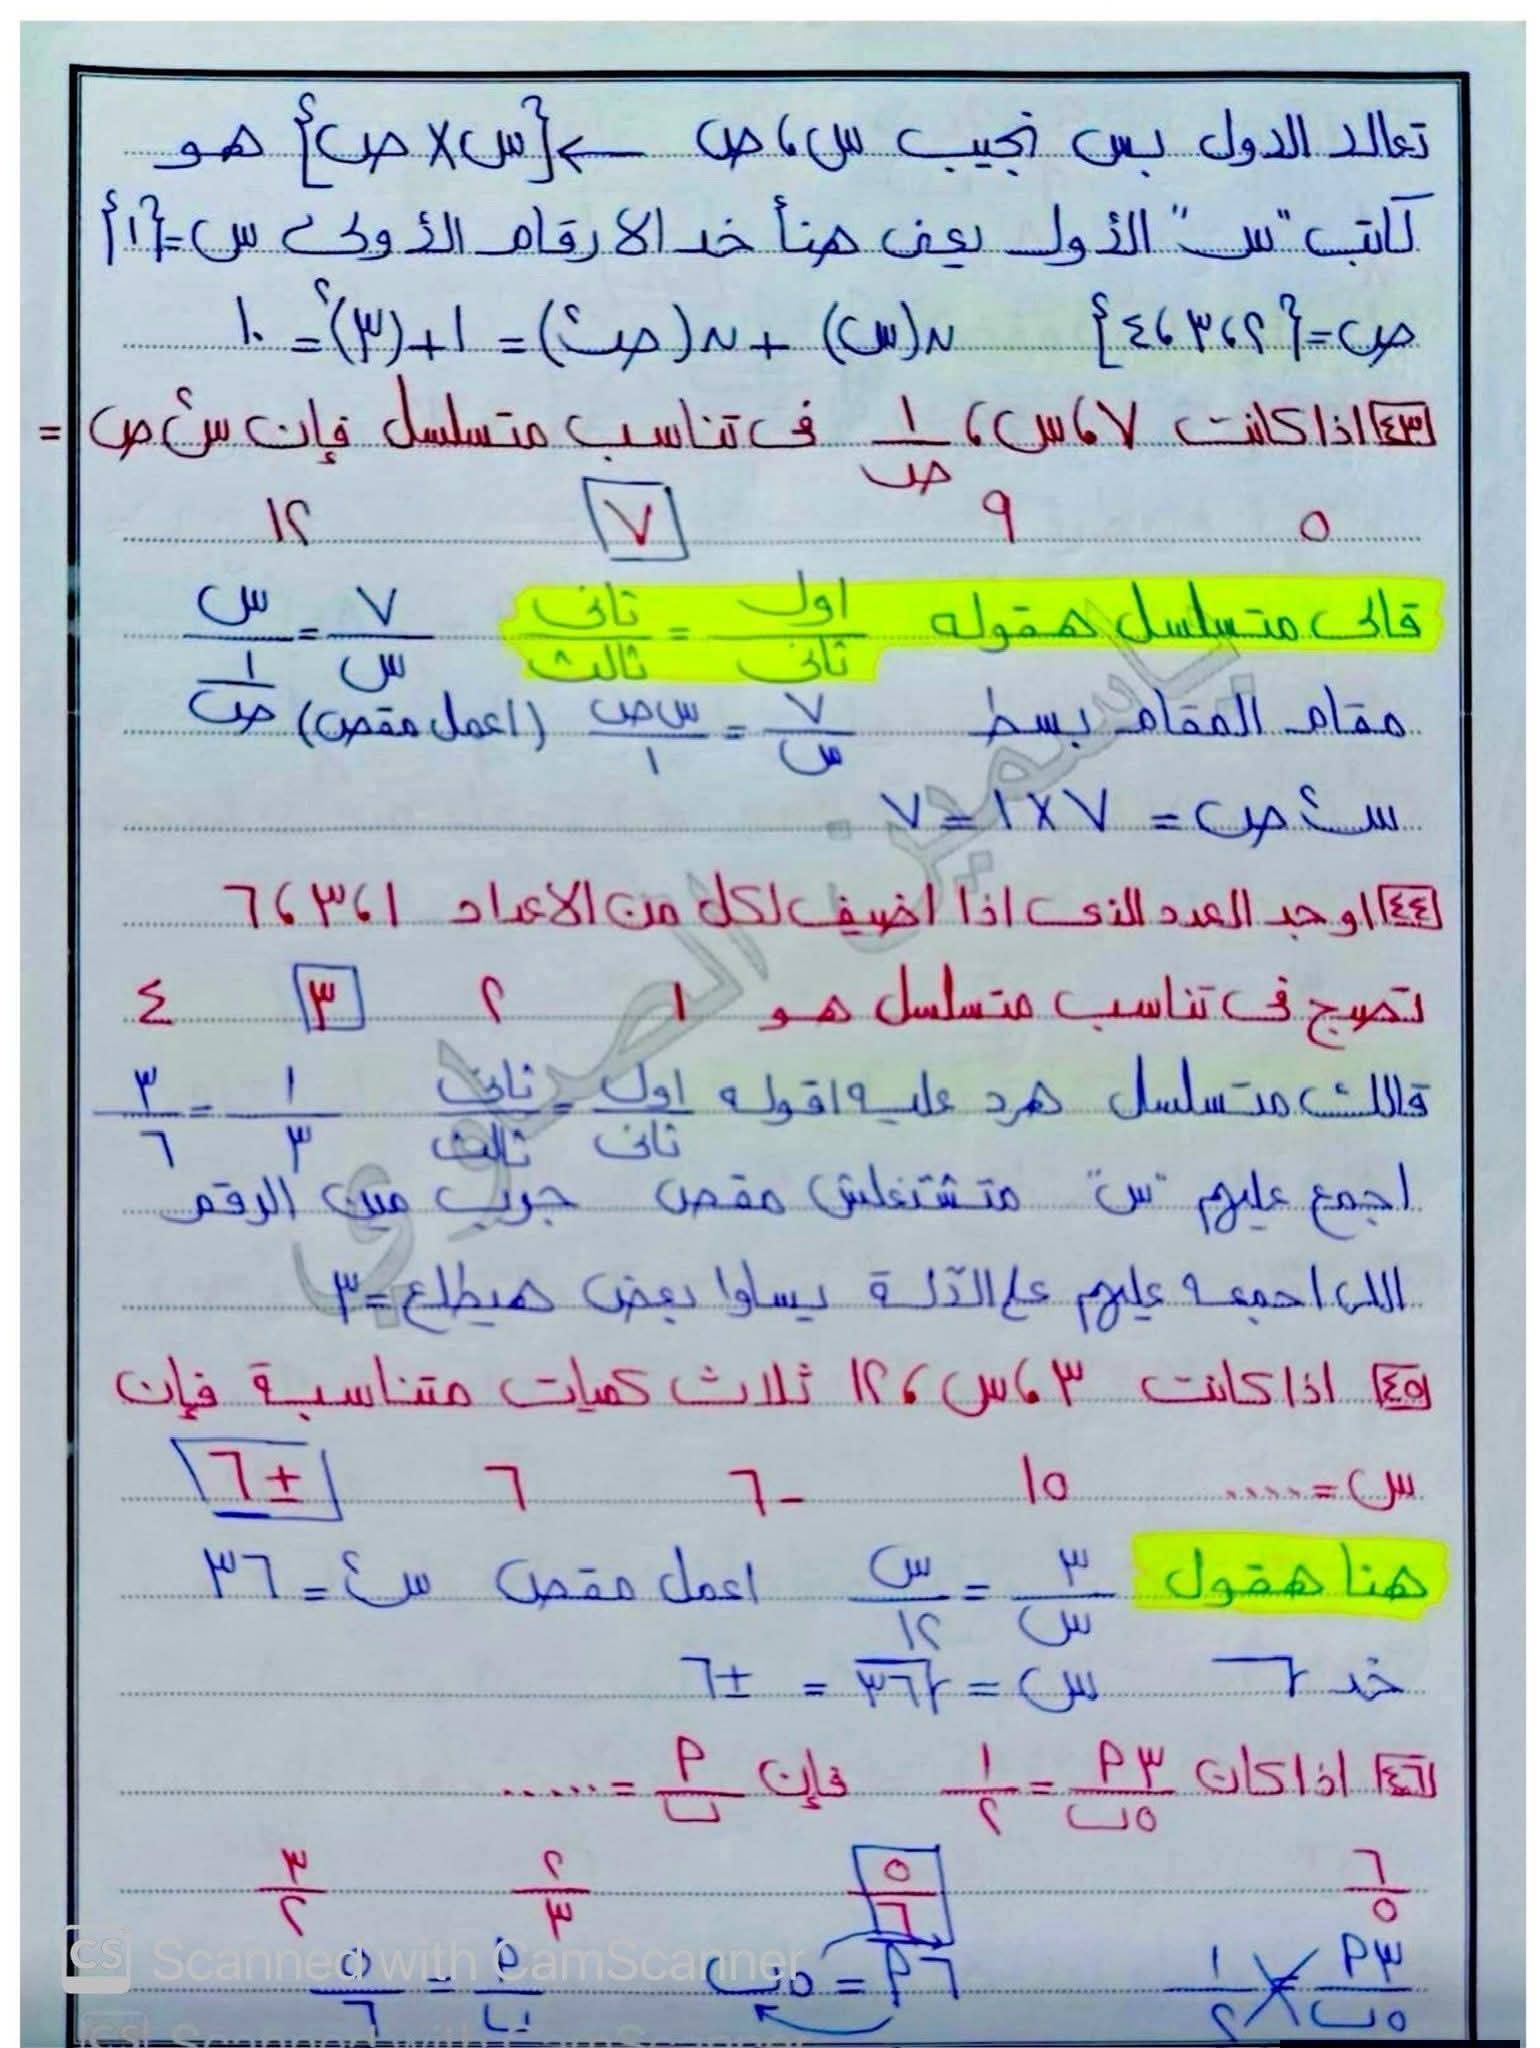 تعالد الدول بس نجيب س، ص ← {س × ص} هو
كاتب "س" الأول يعنى هنأخد الارقام الأولى س = {١}
ص = {٢، ٣، ٤} ن(س) + ن(ص٢) = ١ + (٣)٢ = ١٠
٤٣ اذا كانت ٧، س، ١/ص فى تناسب متسلسل فإن س٢ ص =
٥ ٩ ٧ ١٢
قالى متسلسل هقوله اول/تانى = تانى/تالت ٧/س = س/(١/ص)
مقام المقام بسط ٧/س = س ص/١ (اعمل مقص)
س٢ ص = ٧ × ١ = ٧
٤٤ اوجد العدد الذى اذا اضيف لكل من الاعداد ١، ٣، ٦
تصبح فى تناسب متسلسل هو ١ ٢ ٣ ٤
قالك متسلسل هرد عليه اقوله اول/تانى = تانى/تالت ١/٣ = ٣/٦
اجمع عليهم "س" متشتغلش مقص جرب مين الرقم
اللى اجمعه عليهم على الآلة يساوا بعض هيطلع = ٣
٤٥ اذا كانت ٣، س، ١٢ ثلاث كميات متناسبة فإن
س = .... ١٥ -٦ ٦ ±٦
هنا هقول ٣/س = س/١٢ اعمل مقص س٢ = ٣٦
خد √ س = √٣٦ = ±٦
٤٦ اذا كان ٣أ/٥ب = ١/٢ فإن أ/ب = .....
٦/٥ ٥/٦ ٢/٣ ٣/٢
٣أ/٥ب = ١/٢ ٦أ = ٥ب أ/ب = ٥/٦
ياسمين الصراوي
CS Scanned with CamScanner
CS Scanned with CamScanner